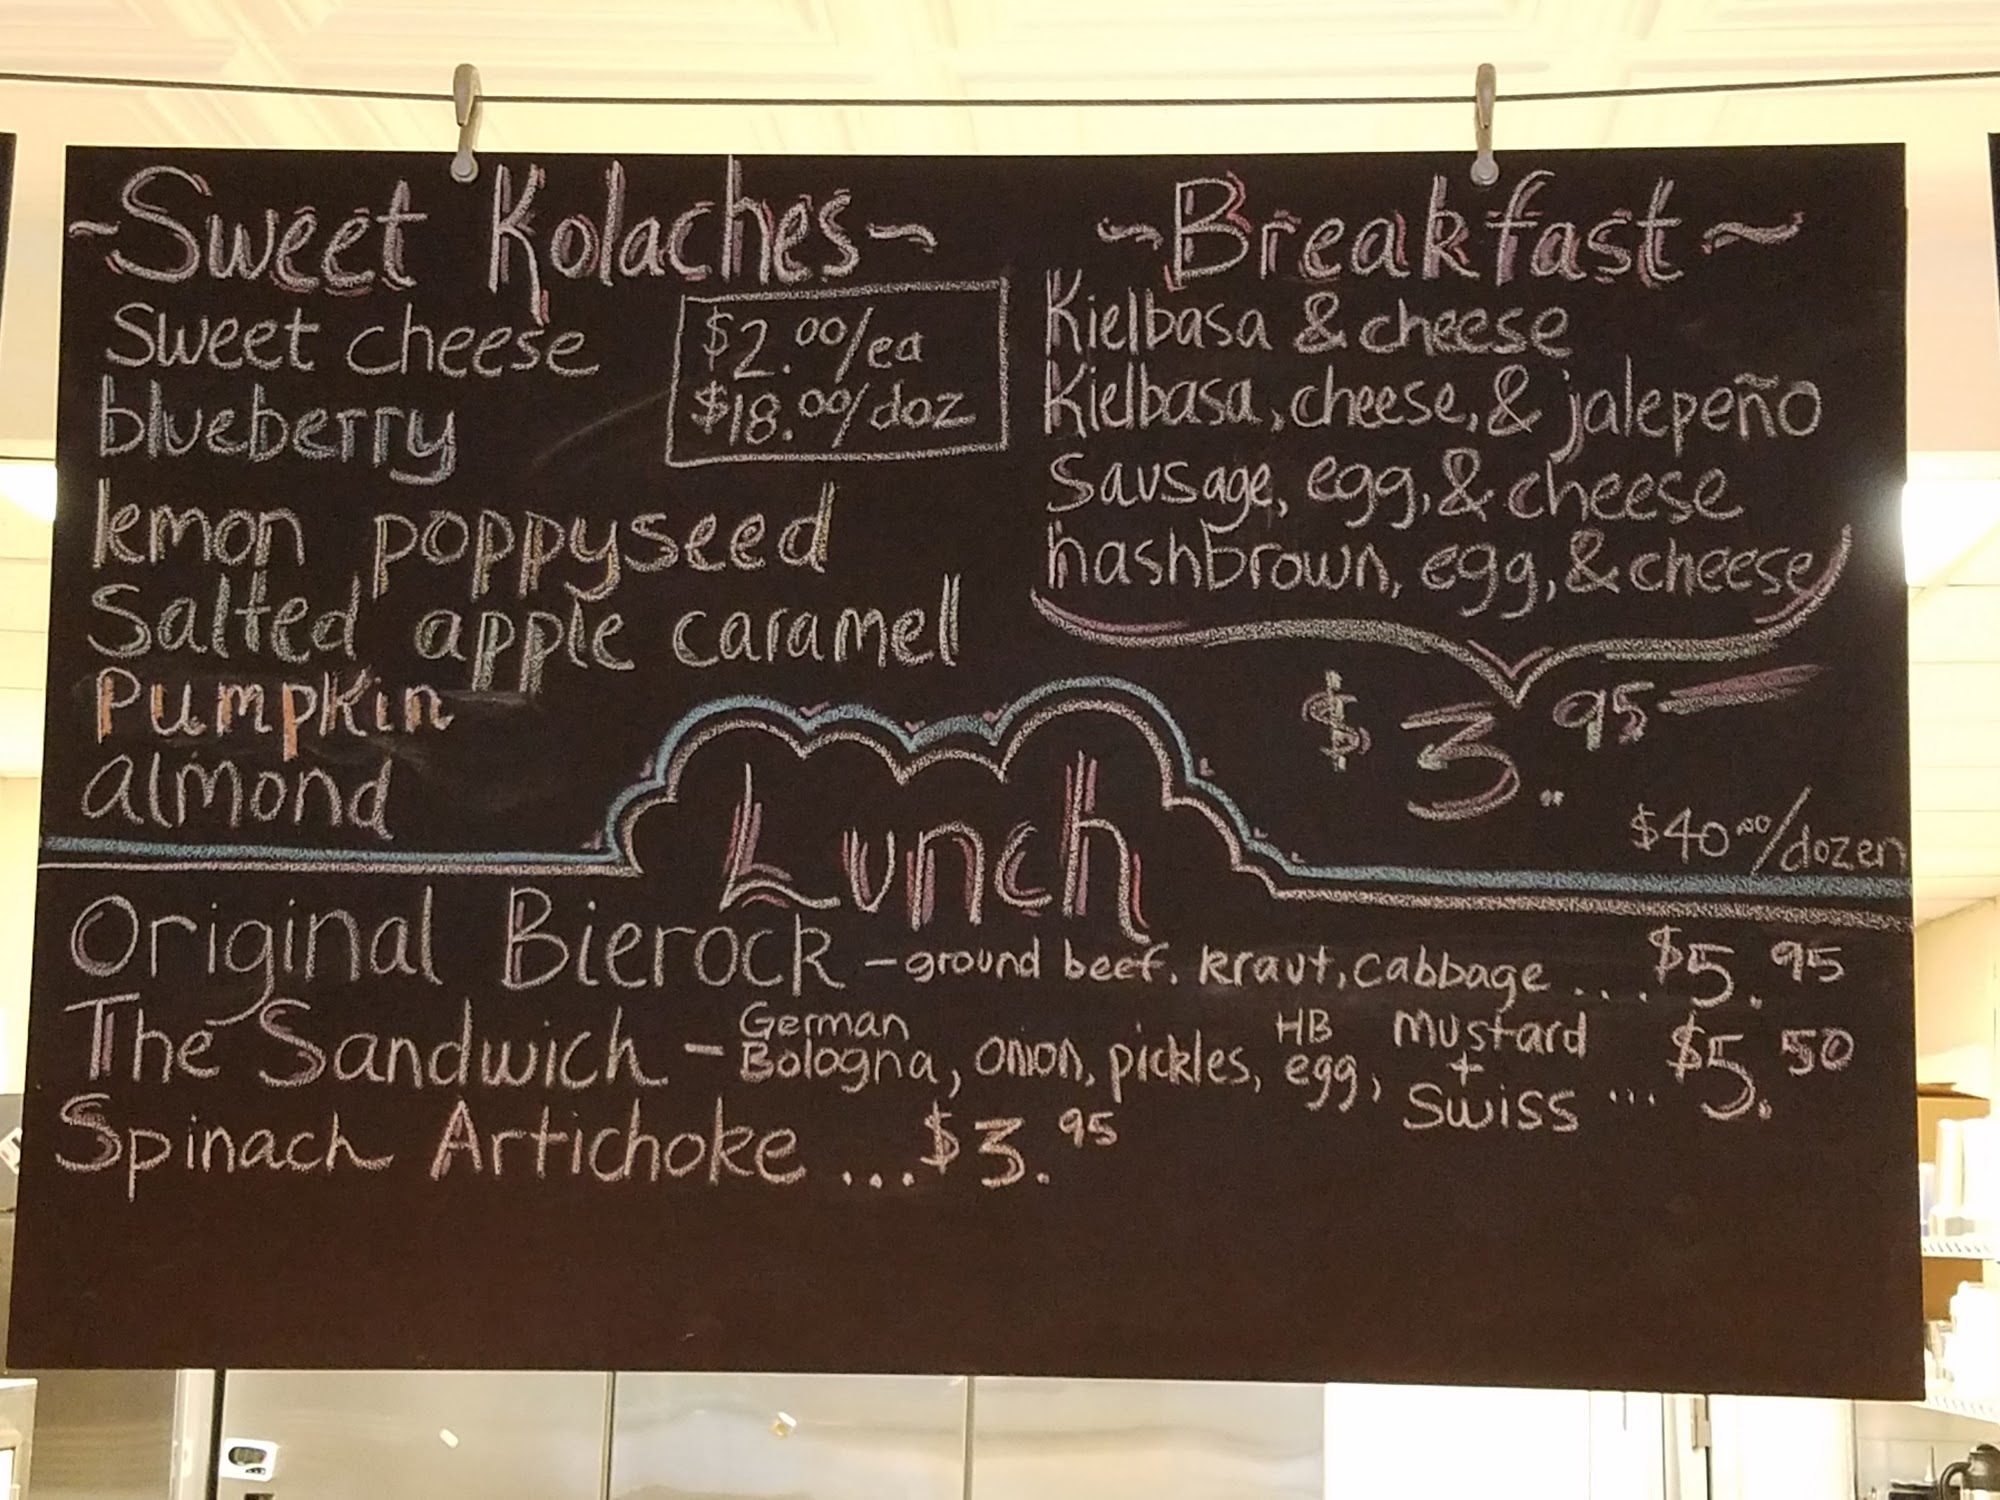 ~Sweet Kolaches~
Sweet cheese
$2.00/ea
blueberry
$18.00/doz
lemon poppyseed
Salted apple caramel
Pumpkin
almond
~Breakfast~
Kielbasa & cheese
Kielbasa, cheese, & jalepeño
Sausage, egg, & cheese
hashbrown, egg, & cheese
$3.95
$40.00/dozen
Lunch
Original Bierock - ground beef. kraut, cabbage ... $5.95
The Sandwich - German Bologna, onion, pickles, HB egg, mustard + Swiss ... $5.50
Spinach Artichoke ... $3.95